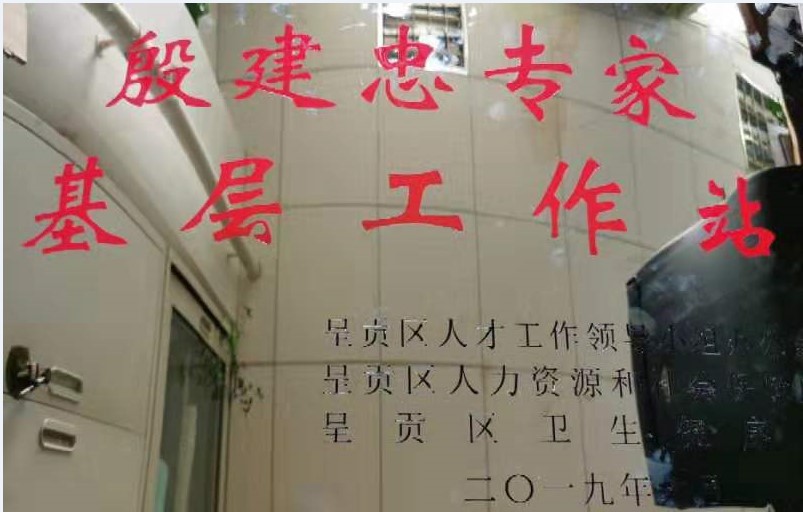 殷建忠专家
基层工作站
呈贡区人才工作领导小组办
呈贡区人力资源和社会保
呈贡区卫生健康
二〇一九年月